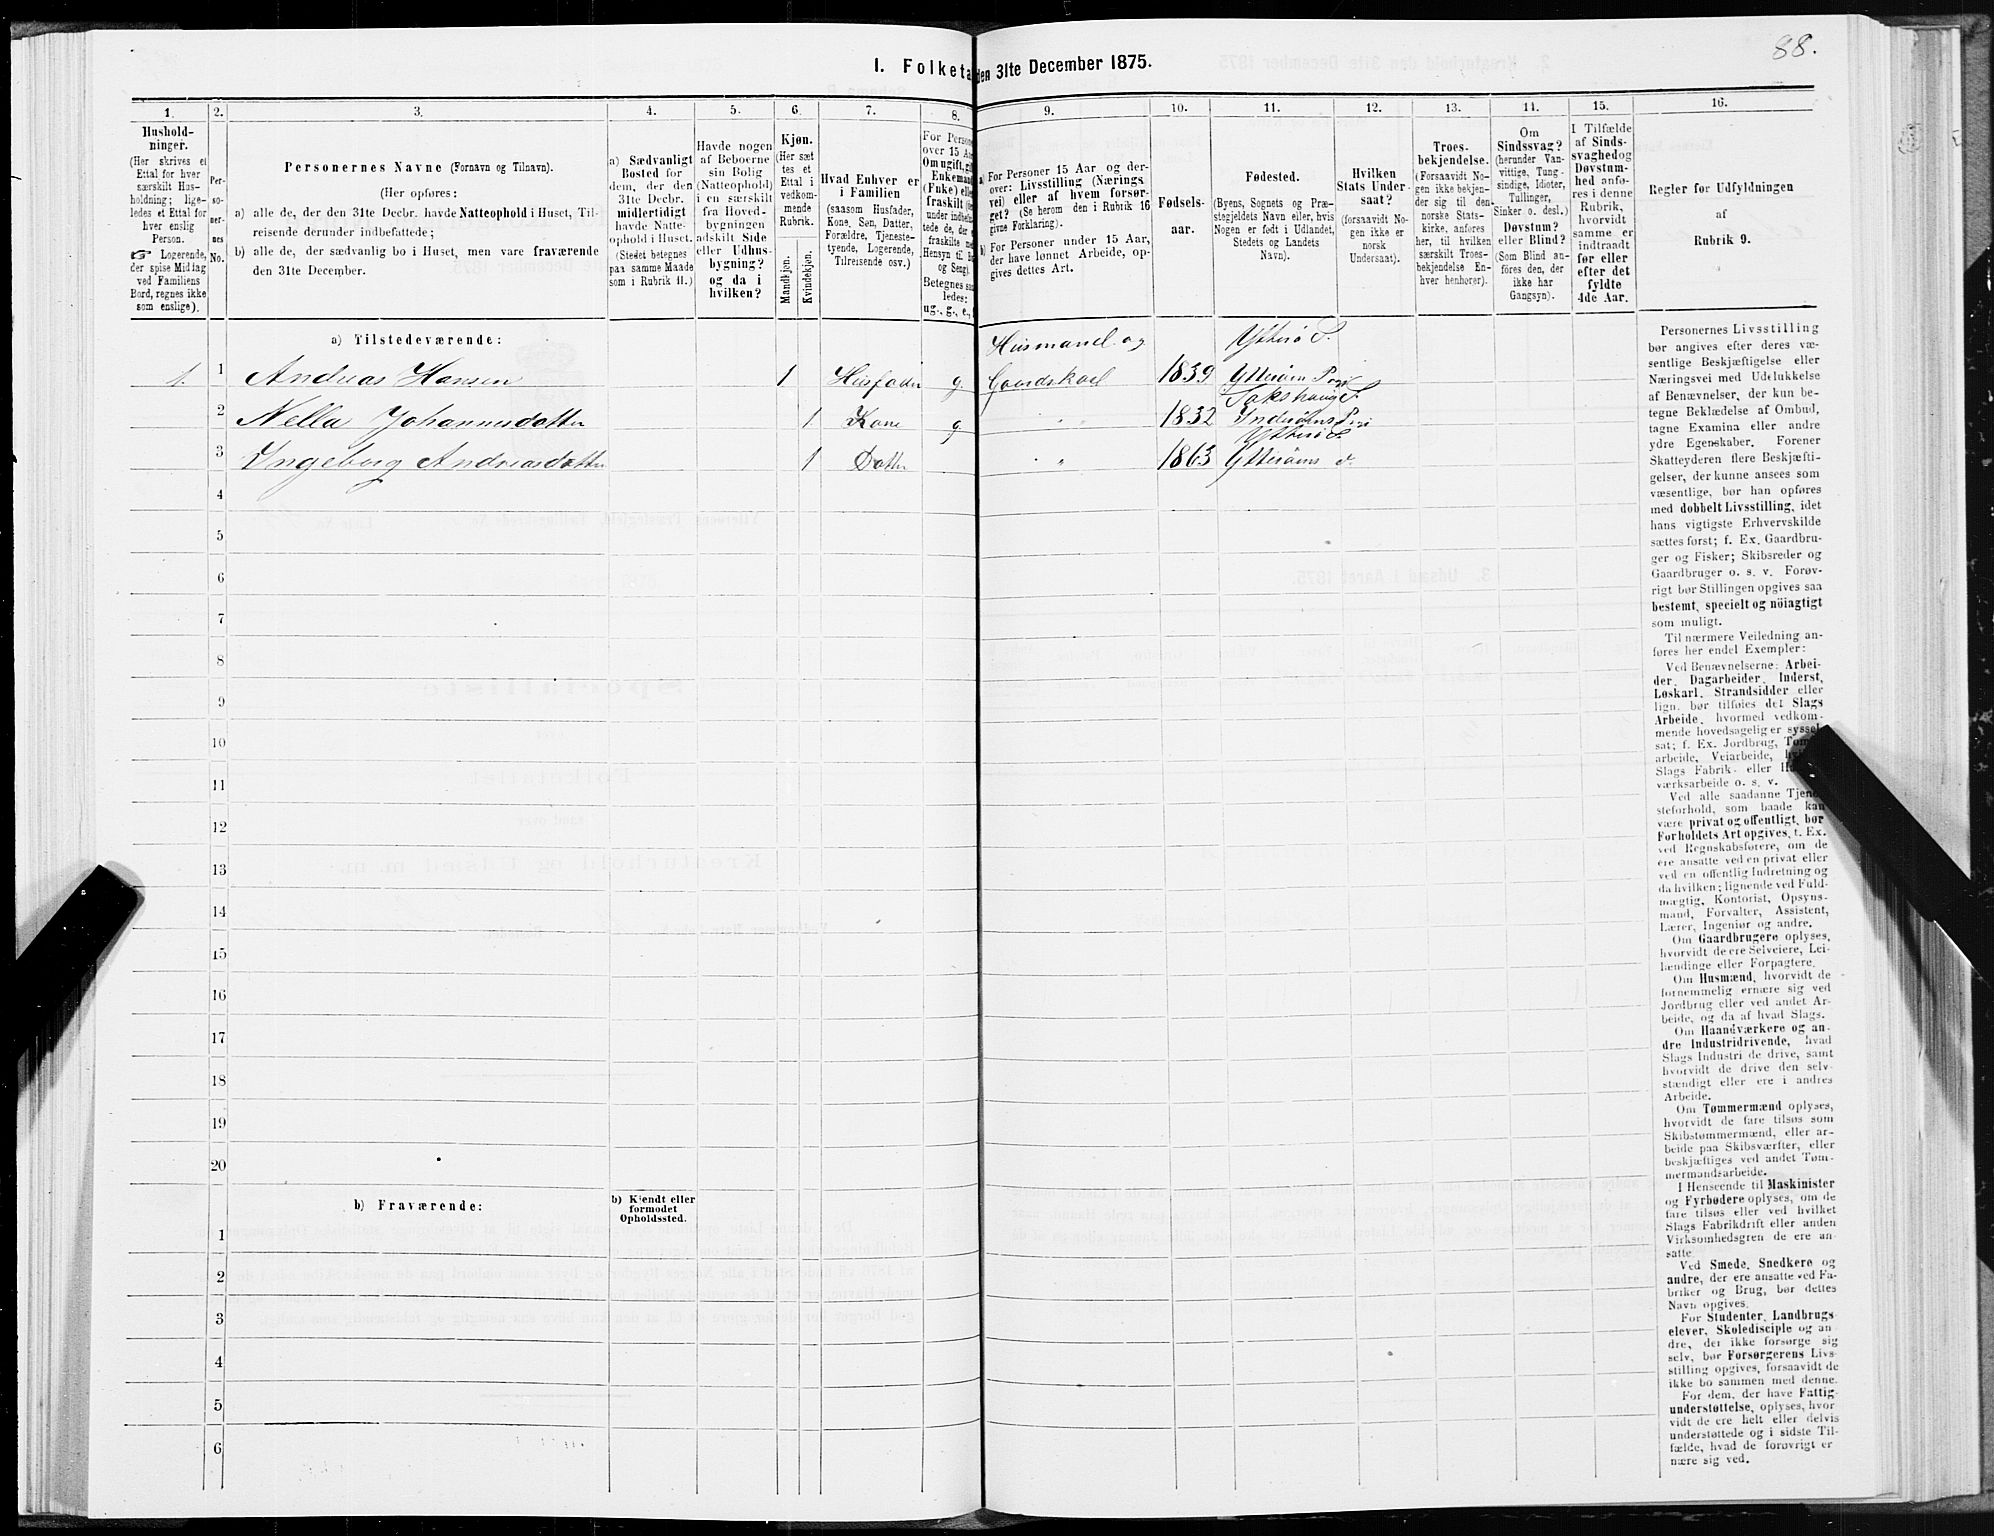 88.
I. Folketa den 31te December 1875.
1. 2. 3. 4. 5. 6. 7. 8. 9. 10. 11. 12. 13. 14. 15. 16.
Hushold-
ninger.
(Her skrives et
Ettal for hver
særskilt Hus-
holdning; lige-
ledes et Ettal for
hver enslig
Person.
☞ Logerende,
der spise Middag
ved Familiens
Bord, regnes ikke
som enslige).
Per-
so-
ner-
nes
No.
Personernes Navne (Fornavn og Tilnavn).
(Her opføres:
a) alle de, der den 31te Decbr. havde Natteophold i Huset, Til-
reisende derunder indbefattede;
b) alle de, der sædvanlig bo i Huset, men vare fraværende
den 31te December.
a) Sædvanligt
Bosted for
dem, der den
31te Decbr.
midlertidigt
havde Natte-
ophold i Huset.
(Stedet betegnes
paa samme Maade
som i Rubrik 11.)
Havde nogen
af Beboerne
sin Bolig
(Natteophold)
i en særskilt
fra Hoved-
bygningen
adskilt Side
eller Udhus-
bygning?
og da i
hvilken?
Kjøn.
(Her sæt
tes et
Ettal i
vedkom-
mende
Rubrik.
Mandkjøn.
Kvindekjøn.
Hvad Enhver er
i Familien
(saasom Husfader,
Kone, Søn, Datter,
Forældre, Tjeneste-
tyende, Logerende,
Tilreisende osv.).
For Person
over 15 Aa
Om ugift, gif
Enkeman
(Enke) elle
fraskilt
under indbefa
tede de, der e
fraskilte
Hensyn til B
og Seng).
Betegnes saa
ledes:
ug., g., e.,
a) For Personer 15 Aar og der-
over: Livsstilling (Nærings
vei) eller af hvem forsør-
get? (Se herom den i Rubrik 16
givne Forklaring).
b) For Personer under 15 Aar,
der have lønnet Arbeide, op-
gives dettes Art.
Fødsels-
aar.
Fødested.
(Byens, Sognets og Præ-
stegjeldets Navn eller, hvis
Nogen er født i Udlandet,
Stedets og Landets
Navn).
Hvilken
Stats Under-
saat?
(forsaavidt No-
gen ikke er
norsk
Undersaat).
Troes-
bekjendelse.
(Forsaavidt No-
gen ikke bekjen-
der sig til den
norske Stats-
kirke, anføres
her, til hvilken
særskilt Troes-
bekjendelse En-
hver henhører).
Om
Sindssvag?
(herunder Van-
vittige, Tung-
sindige, Idioter,
Tullinger,
Sinker o. desl.)
Døvstum?
eller Blind?
(Som Blind an-
føres den, der
ikke har
Gangsyn).
I Tilfælde
af Sinds-
svaghed og
Døvstum-
hed anfø-
res i denne
Rubrik,
hvorvidt
samme er
indtraadt
før eller
efter det
fyldte
4de Aar.
Regler for Udfyldningen
af
Rubrik 9.
a) Tilstedeværende:
Husmand og Ytterø S.
1. 1 Andreas Hansen 1 Husfader g. Gaardskarl 1839 Ytterøen Pgj
Sakshaug S.
2 Nella Johannesdatter 1 Kone g " 1832 Inderøens Pgj
Ytterø S.
3 Ingeborg Andreasdatter 1 Datter " 1863 Ytterøens d.
4
5
6
7
8
9
10
11
12
13
14
15
16
17
18
19
20
b) Fraværende:
b) Kjendt eller
formodet
Opholdssted.
1
2
3
4
5
6
Personernes Livsstilling
bør angives efter deres væ-
sentlige Beskjæftigelse eller
Næringsvei med Udelukkelse
af Benævnelser, der kun be-
tegne Beklædelse af Ombud,
tagne Examina eller andre
ydre Egenskaber. Forener
Skatteyderen flere Beskjæfti-
gelser, der kunne ansees som
væsentlige, bør han opføres
med dobbelt Livsstilling, idet
hans vigtigste Erhvervskilde
sættes først; f. Ex. Gaardbru-
ger og Fisker; Skibsreder og
Gaardbruger o. s. v. Forøv-
rigt bør Stillingen opgives saa
bestemt, specielt og nöiagtigt
som muligt.
Til nærmere Veiledning an-
føres her endel Exempler:
Ved Benævnelserne: Arbei-
der, Dagarbeider, Inderst,
Løskarl, Strandsidder eller
lign. bør tilføies det Slags
Arbeide, hvormed vedkom-
mende hovedsagelig er syssel-
sat; f. Ex. Jordbrug, Tøm
arbeide, Veiarbeide,
Slags Fabrik- eller
værksarbeide o. s. v.
Ved alle saadanne Tjene
steforhold, som baade kan
være privat og offentligt, bør
Forholdets Art opgives, t. Ex.
ved Regnskabsførere, om de
ere ansatte ved en privat eller
ved en offentlig Indretning og
da hvilken; lignende ved Fuld-
mægtig, Kontorist, Opsyns-
mand, Forvalter, Assistent,
Lærer, Ingeniør og andre.
Om Gaardbrugere oplyses,
hvorvidt de ere Selveiere, Lei-
lændinge eller Forpagtere.
Om Husmænd, hvorvidt de
fornemmelig ernære sig ved
Jordbrug eller ved andet Ar-
beide, og da af hvad Slags.
Om Haandværkere og an-
dre Industridrivende, hvad
Slags Industri de drive, samt
hvorvidt de drive den selv-
stændigt eller ere i andres
Arbeide.
Om Tømmermænd oplyses,
hvorvidt de fare tilsøs som
Skibstømmermænd, eller ar-
beide paa Skibsværfter, eller
beskjæftiges ved andet Tøm-
mermandsarbeide.
I Henseende til Maskinister
og Fyrbødere oplyses, om de
fare tilsøs eller ved hvilket
Slags Fabrikdrift eller anden
Virksomhedsgren de ere an-
satte
Ved Smede, Snedkere og
andre, der ere ansatte ved Fa-
briker og Brug, bør dettes
Navn opgives.
For Studenter, Landbrugs-
elever, Skoledisciple og an-
dre, der ikke forsørge sig
selv, bør Forsørgerens Livs-
stilling opgives, forsaavidt de
ikke bo sammen med denne.
For dem, der have Fattig-
understøttelse, oplyses, hvor-
vidt de ere helt eller delvis
understøttede og i sidste Til-
fælde, hvad de forøvrigt er
nære sig ved.